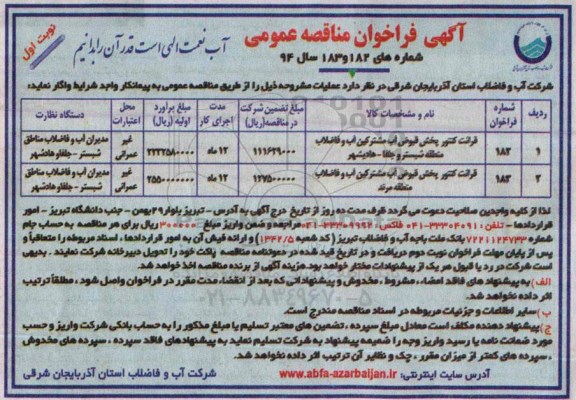 نوبت اول
آگهی فراخوان مناقصه عمومی
آب نعمت الهی است قدر آن را بدانیم
شماره های ۱۸۲ و ۱۸۳ سال ۹۴
شرکت آب و فاضلاب استان آذربایجان شرقی در نظر دارد عملیات مشروحه ذیل را از طریق مناقصه عمومی به پیمانکار واجد شرایط واگذار نماید:
ردیف شماره فراخوان نام و مشخصات کالا مبلغ تضمین شرکت در مناقصه(ریال) مدت اجرای کار مبلغ برآورد اولیه (ریال) محل اعتبارات دستگاه نظارت
۱ ۱۸۲ قرائت کنتور پخش قبوض آب مشترکین آب و فاضلاب منطقه شبستر و جلفا - هادیشهر ۱۱۱۶۲۹۰۰۰ ۱۲ ماه ۲۲۳۲۵۸۰۰۰۰ غیر عمرانی مدیران آب و فاضلاب مناطق شبستر - جلفا و هادیشهر
۲ ۱۸۳ قرائت کنتور پخش قبوض آب مشترکین آب و فاضلاب منطقه مرند ۱۲۷۵۰۰۰۰۰ ۱۲ ماه ۲۵۵۰۰۰۰۰۰۰ غیر عمرانی مدیران آب و فاضلاب مناطق شبستر - جلفا و هادیشهر
لذا از کلیه واجدین صلاحیت دعوت می گردد ظرف مدت ده روز از تاریخ درج آگهی به آدرس - تبریز بلوار ۲۹ بهمن - جنب دانشگاه تبریز - امور
قراردادها - تلفن ۳۳۳۰۴۰۹۱۱-۰۴۱ فاکس: ۳۳۳۰۹۹۶۲-۰۴۱ مراجعه و ضمن واریز مبلغ ۳۰۰۰۰۰ ریال برای هر مناقصه به حساب جام
شماره ۷۲۲۱۱۲۴۷۳۳ بانک ملت باجه آب و فاضلاب تبریز ( کد شعبه ۱۳۴۲/۵) و ارائه فیش آن به امور قراردادها ، اسناد مربوطه را متعاقباً و
پس از پایان مهلت فراخوان نوبت دوم دریافت و در تاریخ قید شده در دعوتنامه مناقصه پاکت خود را تحویل دبیرخانه شرکت نمایند . بدیهی
است شرکت در رد یا قبول هر یک از پیشنهادات مختار خواهد بود. هزینه آگهی از برنده مناقصه اخذ خواهد شد.
الف) به پیشنهاد های فاقد امضاء ، مشروط ، مخدوش و پیشنهاداتی که بعد از انقضاء مدت مقرر در فراخوان واصل شود ، مطلقاً ترتیب
اثر داده نخواهد شد.
ب) سایر اطلاعات و جزئیات مربوطه در اسناد مناقصه مندرج است.
ج) پیشنهاد دهنده مکلف است معادل مبلغ سپرده ، تضمین های معتبر تسلیم یا مبلغ مذکور را به حساب بانکی شرکت واریز و حسب
مورد ضمانت نامه یا رسید واریز وجه را ضمیمه پیشنهاد به شرکت تسلیم نماید به پیشنهادهای فاقد سپرده ، سپرده های مخدوش
، سپرده های کمتر از میزان مقرر ، چک و نظایر آن ترتیب اثر داده نخواهد شد.
آدرس سایت اینترنتی: www.abfa-azarbaijan.ir
شرکت آب و فاضلاب استان آذربایجان شرقی